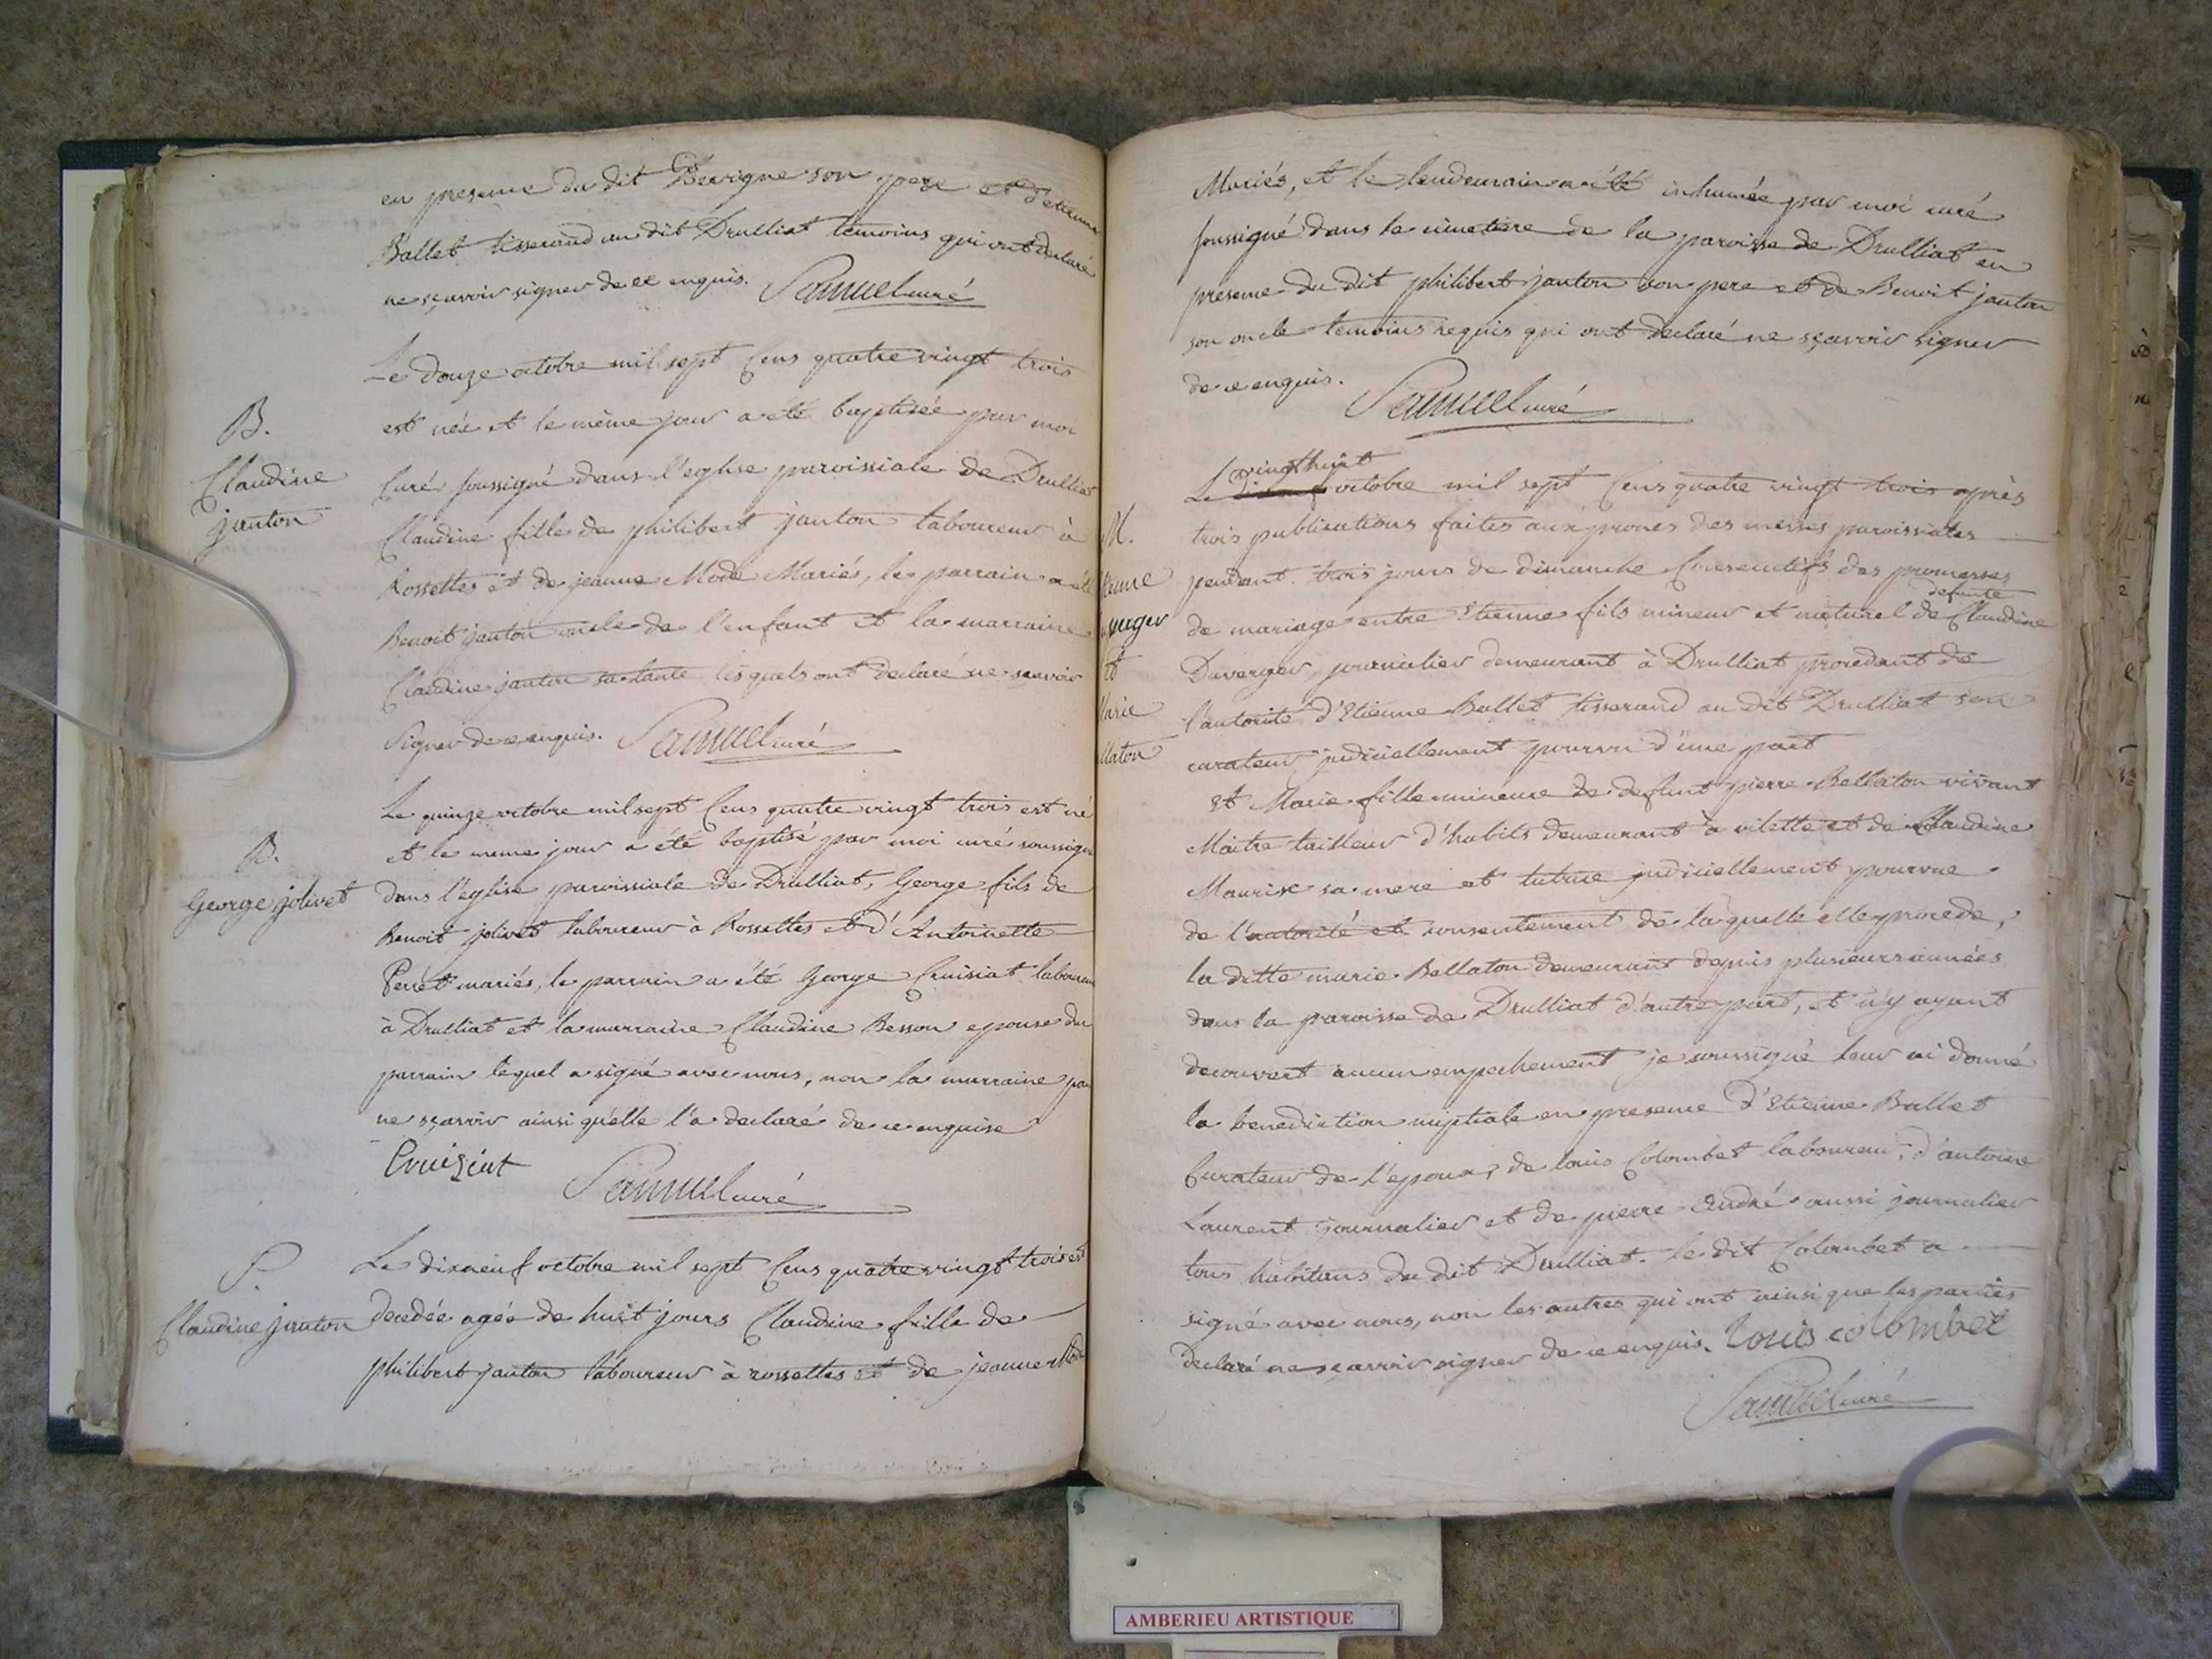 en presence du dit Bevrigne son pere et d'etienne
Ballet tisserand au dit Drulliat témoins qui ont declaré
ne sçavoir signer de ce enquis. Samuel curé
Le douze octobre mil sept Cens quatre vingt trois
B.
est née et le même jour a été baptisée par moi
Claudine
Curé soussigné dans l'eglise paroissiale de Drulliat
janton
Claudine fille de philibert janton laboureur à
Rossettes et de jeanne Mode Mariés, le parrain a été
Benoit janton oncle de l'enfant et la marraine
Claudine janton sa tante lesquels ont declaré ne sçavoir
signer de ce enquis. Samuel curé
Le quinze octobre mil sept Cens quatre vingt trois est né
B.
et le meme jour a été baptisé par moi curé soussigné
George jolivet
dans l'eglise paroissiale de Drulliat, George fils de
Benoit jolivet laboureur à Rossettes et d'Antoinette
Perret mariés, le parrain a été George Cruisiat laboureur
à Drulliat et la marraine Claudine Besson epouse du
parrain lequel a signé avec nous, non la marraine pour
ne sçavoir ainsi qu'elle l'a declaré de ce enquise
Cruisiat Samuel curé
S.
Le dixneuf octobre mil sept Cens quatre vingt trois est
Claudine janton
decedée agée de huit jours Claudine fille de
philibert janton laboureur à rossettes et de jeanne Mode
Mariés, et le lendemain a été inhumée par moi curé
soussigné dans le cimetiere de la paroisse de Drulliat en
presence du dit philibert janton son pere et de Benoit janton
son oncle temoins requis qui ont declaré ne sçavoir signer
de ce enquis.
Samuel curé
vingt huit
Le octobre mil sept Cens quatre vingt trois après
M.
trois publications faites aux prones des messes paroissiales
tienne
pendant trois jours de dimanche Consecutifs des promesses
defunte
verger
de mariage entre Etienne fils mineur et naturel de Claudine
et
Duverger, journalier demeurant à Drulliat procedant de
Marie
l'autorité d'Etienne Ballet tisserand au dit Drulliat son
llaton
curateur judiciellement pourvu d'une part
et Marie fille mineure de defunt pierre Bellaton vivant
Maitre tailleur d'habits demeurant à vilette et de Claudine
Maurise sa mere et tutrice judiciellement pourvue
de l'autorité et consentement de laquelle elle procede,
la ditte marie Bellaton demeurant depuis plusieurs années
dans la paroisse de Drulliat d'autre part, et n'y ayant
decouvert aucun empechement je soussigné leur ai donné
la benediction nuptiale en presence d'Etienne Ballet
Curateur de l'epoux, de louis Colombet laboureur, d'antoine
Laurent journalier et de pierre André aussi journalier
tous habitans du dit Drulliat. le dit Colombet a
signé avec nous, non les autres qui ont ainsi que les parties
declaré ne sçavoir signer de ce enquis. Louis colombet
Samuel curé
AMBERIEU ARTISTIQUE